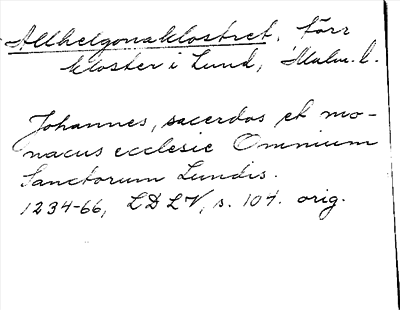 Allhelgonaklostret, förr
kloster i Lund, Malm. l.
Johannes, sacerdos et mo-
nacus ecclesie Omnium
Sanctorum Lundis.
1234-66, LDLV, s. 104. orig.